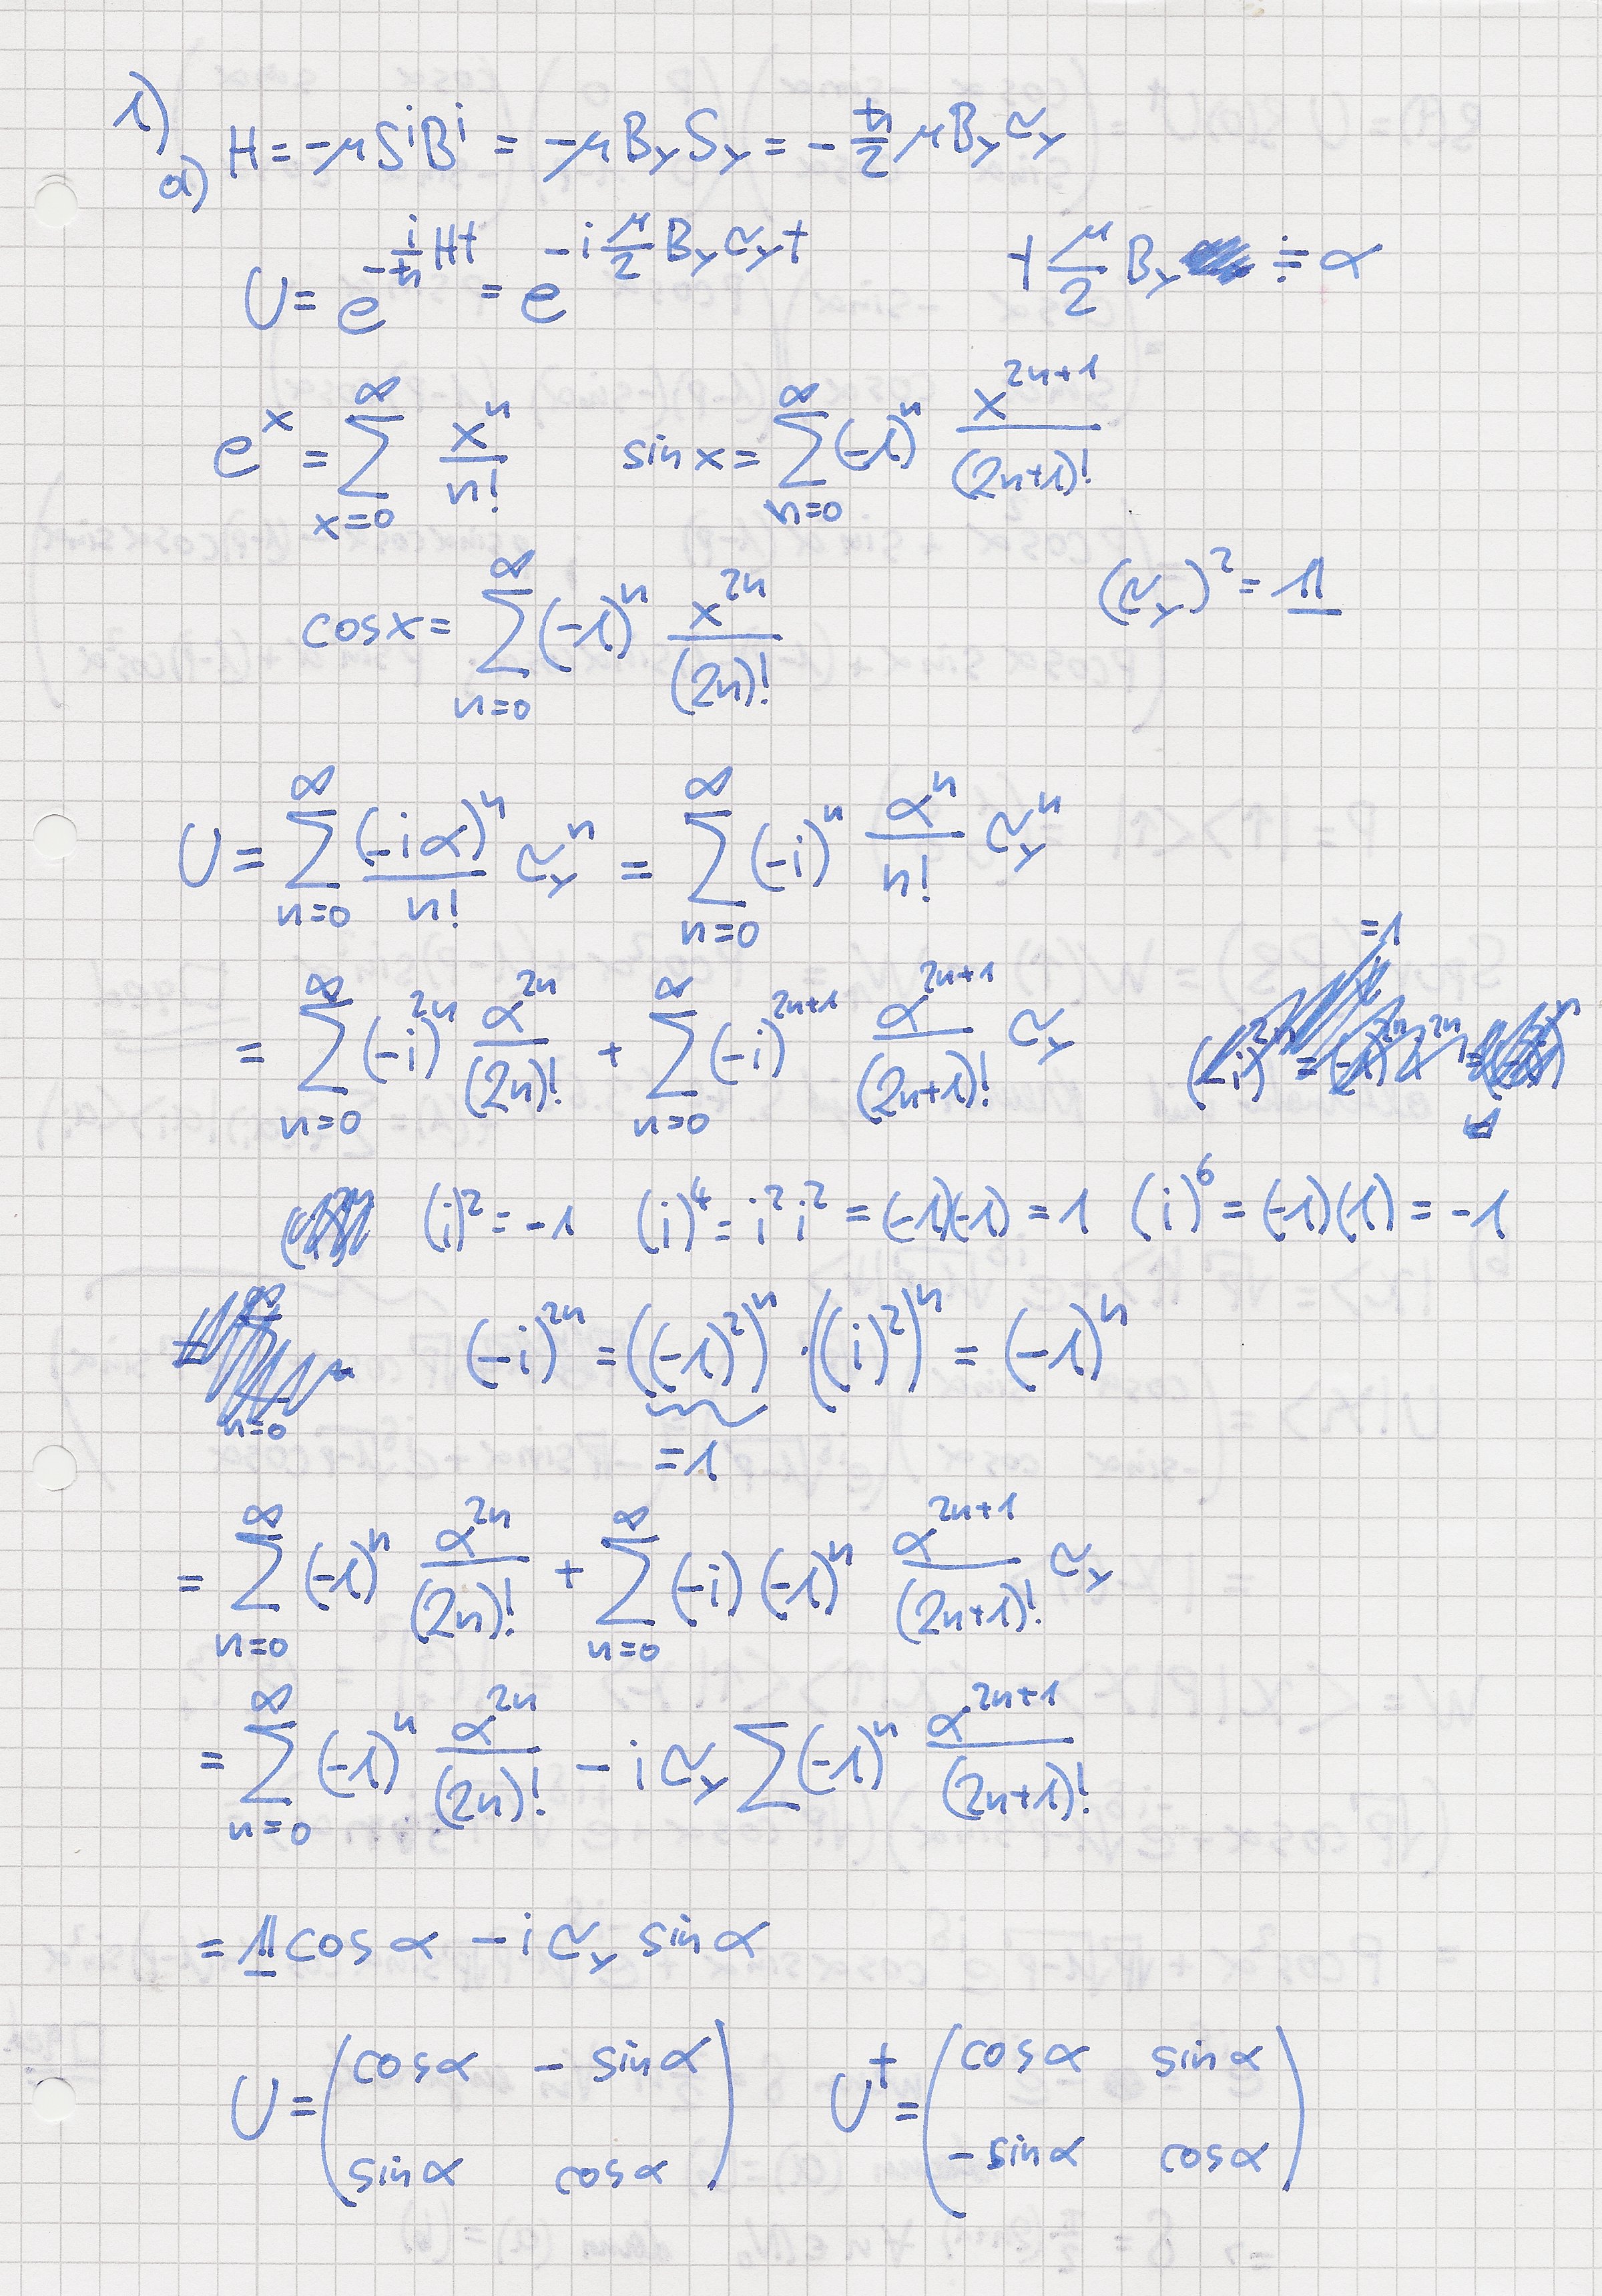 1)
a) H = -μ SⁱBⁱ = -μ B_y S_y = - ħ/2 μ B_y σ_y
U = e^{-i/ħ Ht} = e^{-i μ/2 B_y σ_y t}   t μ/2 B_y ≐ α
e^x = ∑_{x=0}^{∞} x^n/n!   sin x = ∑_{n=0}^{∞} (-1)^n x^{2n+1}/(2n+1)!
cos x = ∑_{n=0}^{∞} (-1)^n x^{2n}/(2n)!   (σ_y)² = 𝟙
U = ∑_{n=0}^{∞} (-iα)^n/n! σ_y^n = ∑_{n=0}^{∞} (-i)^n α^n/n! σ_y^n
= 1
= ∑_{n=0}^{∞} (-i)^{2n} α^{2n}/(2n)! + ∑_{n=0}^{∞} (-i)^{2n+1} α^{2n+1}/(2n+1)! σ_y
(i)² = -1   (i)⁴ = i² i² = (-1)(-1) = 1   (i)⁶ = (-1)(1) = -1
(-i)^{2n} = ((-1)²)^n · ((i)²)^n = (-1)^n
n=0
= 1
= ∑_{n=0}^{∞} (-1)^n α^{2n}/(2n)! + ∑_{n=0}^{∞} (-i)(-1)^n α^{2n+1}/(2n+1)! σ_y
= ∑_{n=0}^{∞} (-1)^n α^{2n}/(2n)! - i σ_y ∑ (-1)^n α^{2n+1}/(2n+1)!
= 𝟙 cos α - i σ_y sin α
U = ( cos α   - sin α )   U† = ( cos α   sin α )
( sin α   cos α )   ( - sin α   cos α )